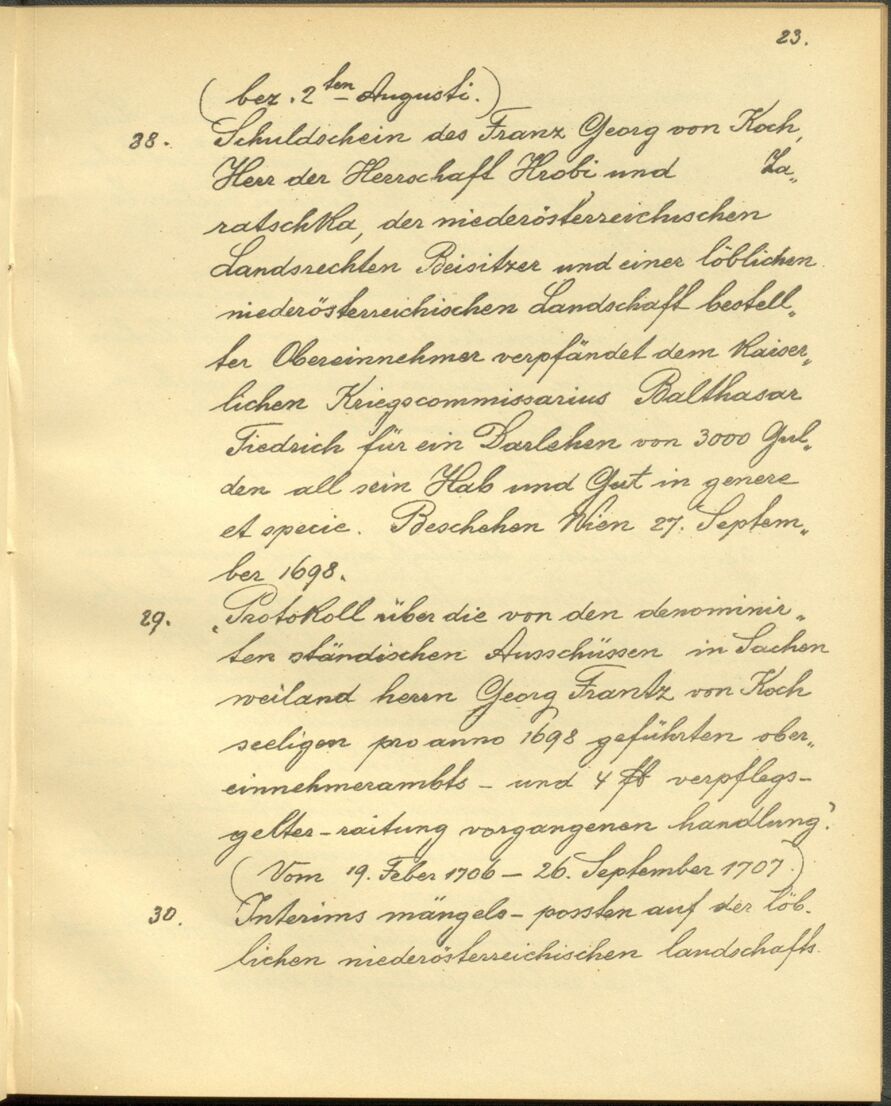 23.
(bez. 2ten Augusti.)
38. Schuldschein des Franz Georg von Koch,
Herr der Herrschaft Hrobi und Za„
ratschka, der niederösterreichischen
Landsrechten Beisitzer und einer löblichen
niederösterreichischen Landschaft bestell„
ter Obereinnehmer verpfändet dem Kaiser„
lichen Kriegscommissarius Balthasar
Fiedrich für ein Darlehen von 3000 Gul„
den all sein Hab und Gut in genere
et specie. Beschehen Wien 27. Septem„
ber 1698.
29. „Protokoll über die von den denominir„
ten ständischen Ausschüssen in Sachen
weiland herrn Georg Frantz von Koch
seeligen pro anno 1698 geführten ober„
einnehmerambts - und 4 fb verpflegs-
gelter-raitung vorgangenen handlung“.
(Vom 19. Feber 1706 - 26. September 1707.)
30. Interims mängels-possten auf der löb.
lichen niederösterreichischen landschafts.